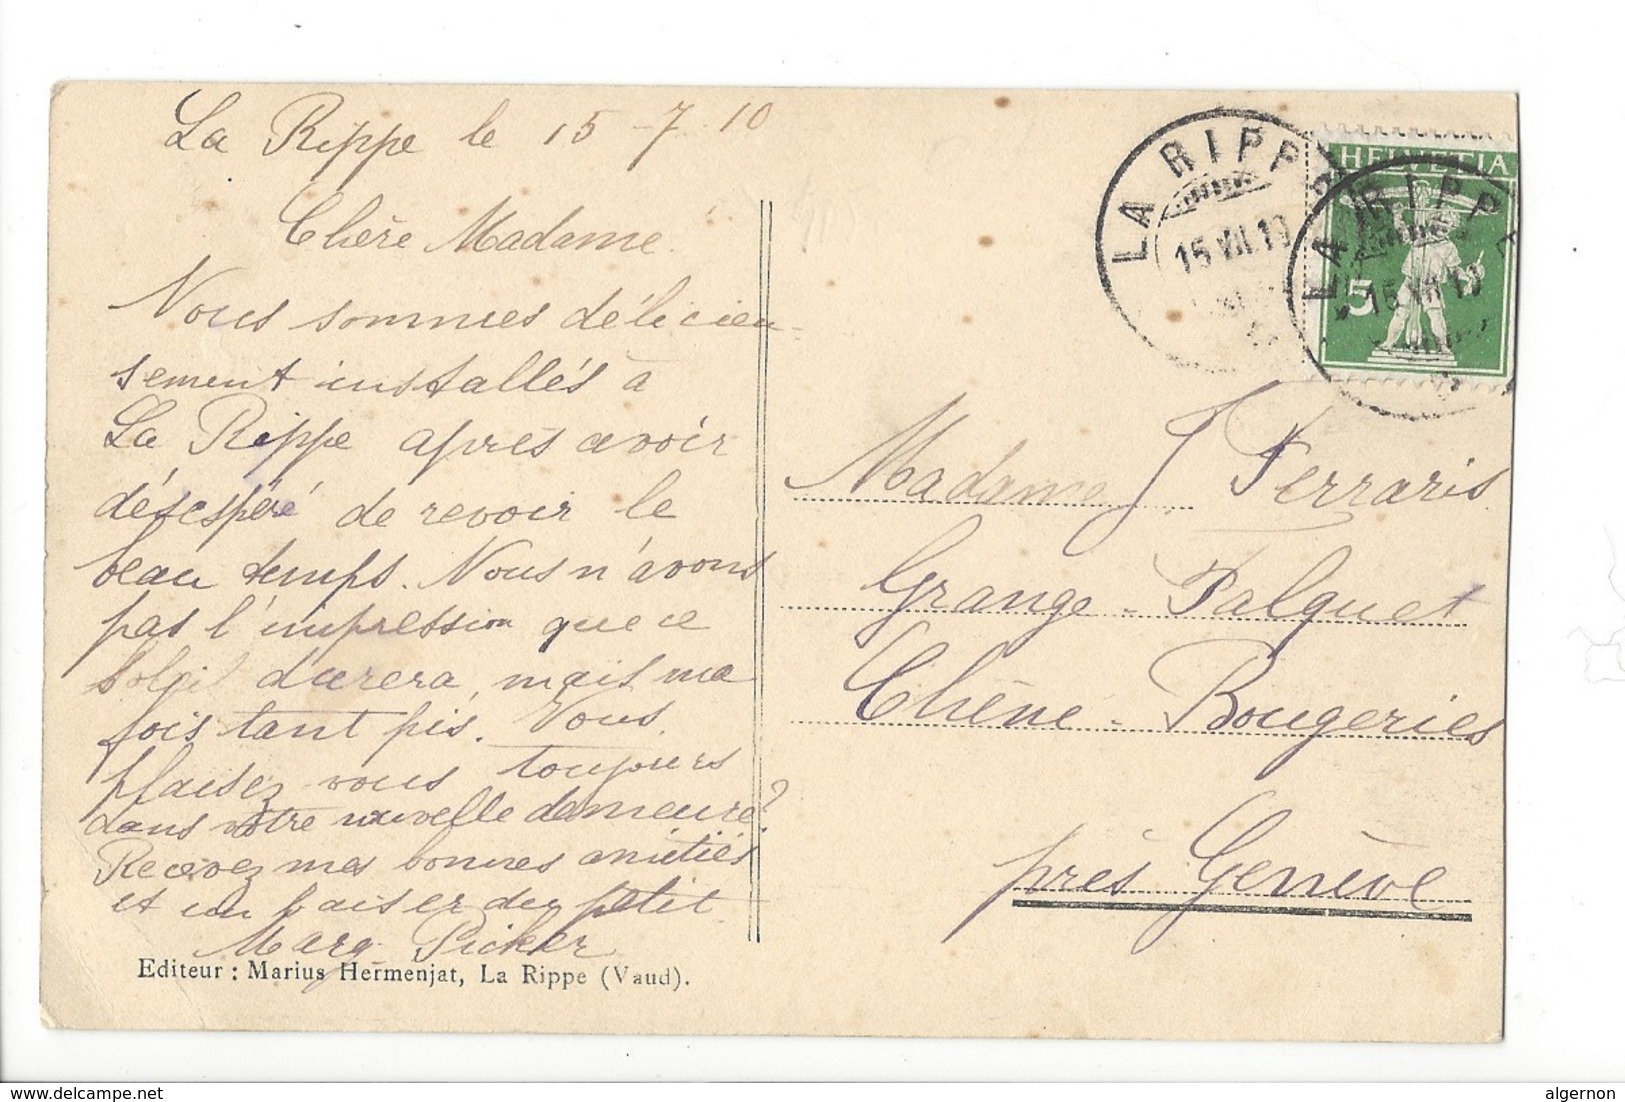 La Rippe le 15-7.10
Chère Madame.
Nous sommes délicieu-
sement installés à
La Rippe après avoir
désespéré de revoir le
beau temps. Nous n'avons
pas l'impression que ce
soleil durera, mais ma
fois tant pis. Vous
plaisez vous toujours
dans votre nouvelle demeure?
Recevez mes bonnes amitiés
et un baiser du petit
Marg. Picker
Editeur : Marius Hermenjat, La Rippe (Vaud).
LA RIPPE
15 VII.10
HELVETIA
5
LA RIPPE
15 VII 10
Madame J Ferraris
Grange-Falquet
Chêne-Bougeries
près Genève
www.delcampe.net
algernon